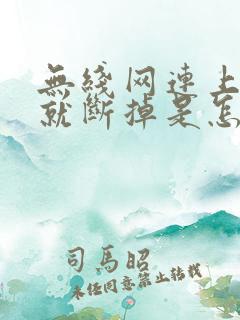 無綫网連上
就斷掉是怎
司馬昭
未任同意禁止轉載